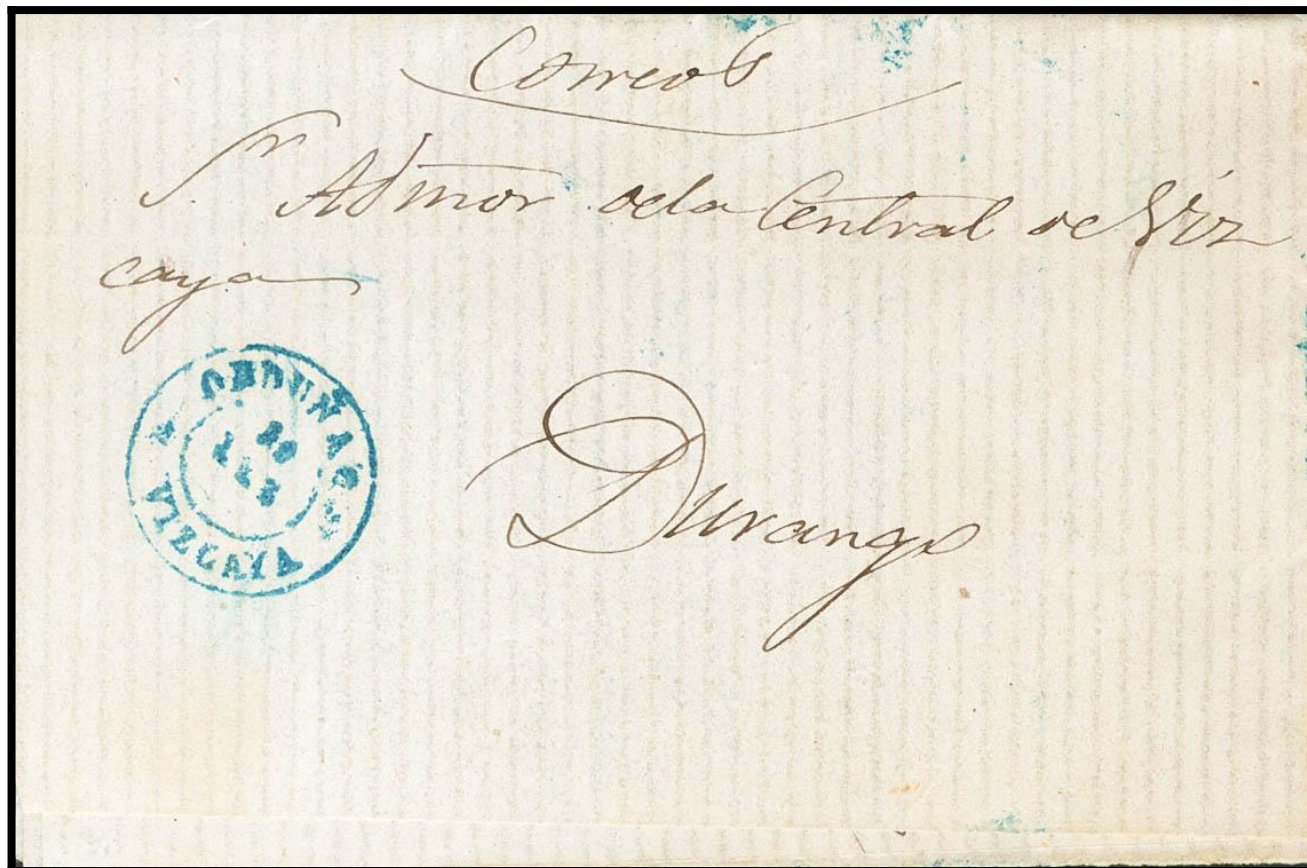 Correos
Sr. Admor dela Central de Viz
caya
ORDUÑA
VIZCAYA
Durango